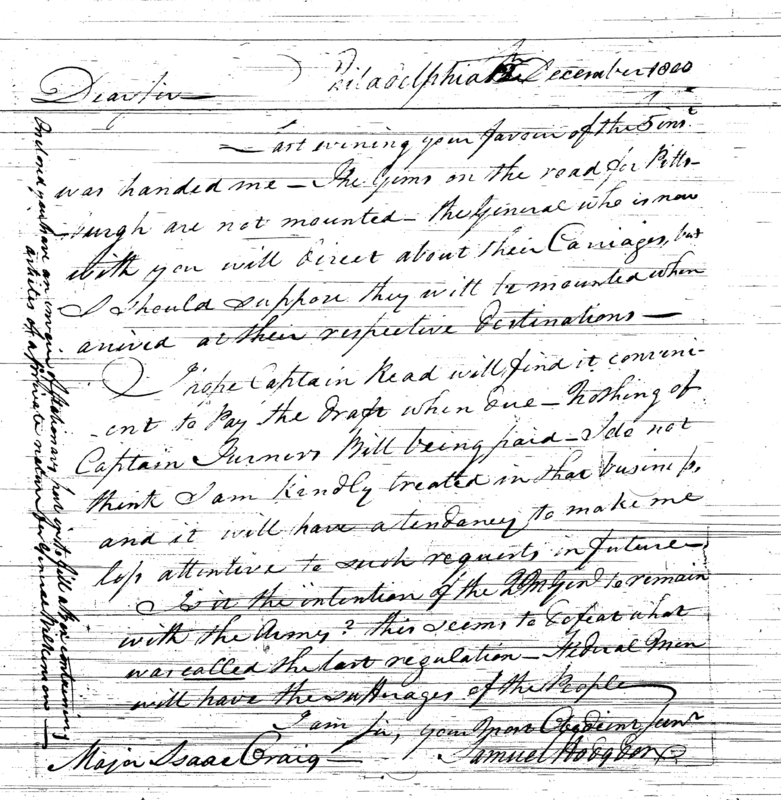 Philadelphia 12 December 1800
Dear Sir—
Last evening your favour of the 5 inst.
was handed me — The Guns on the road for Pitts-
-burgh are not mounted — the General who is now
with you will direct about their Carriages, but
I should suppose they will be mounted when
arrived at their respective destinations —
I hope Captain Read will find it conveni-
-ent to Pay the draft when due — Nothing of
Captain Turners Bill being paid — I do not
think I am kindly treated in that business,
and it will have a tendancy to make me
less attentive to such requests in future —
Is it the intention of the QMGenl to remain
with the Army? this seems to defeat what
was called the last regulation — Federal Men
will have the suffrages of the People
I am Sir, your Most Obedient Servt
Samuel Hodgdon
Major Isaac Craig —
Inclosed you have an invoice of stationary containing
articles of a private nature for General Wilkinson —